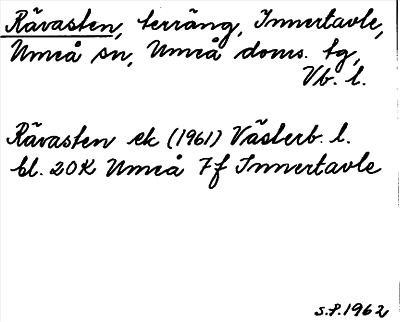 Rävasten, terräng, Innertavle,
Umeå sn, Umeå doms. tg,
Vb. l.
Rävasten ek (1961) Västerb. l.
bl. 20K Umeå 7f Innertavle
S.P. 1962